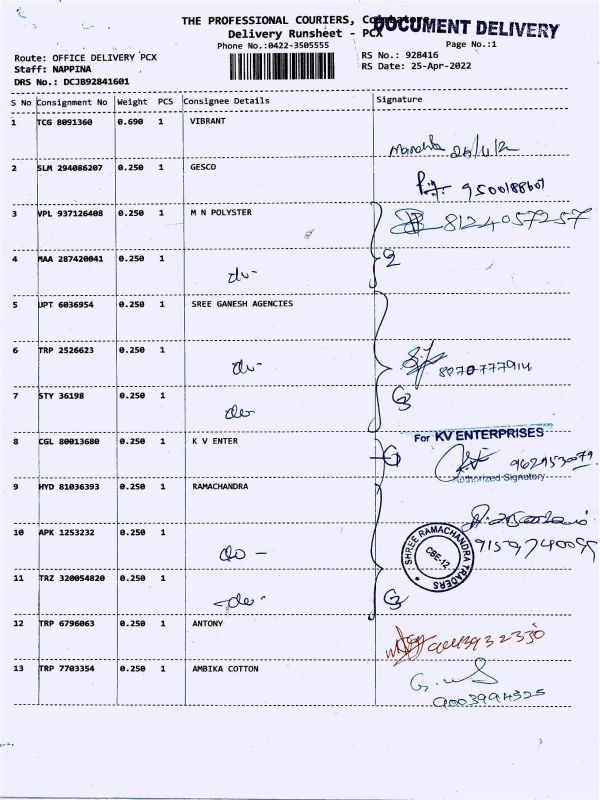 THE PROFESSIONAL COURIERS, Coimbatore
DOCUMENT DELIVERY
Delivery Runsheet - PCX
Phone No.:0422-3505555
Page No.:1
Route: OFFICE DELIVERY PCX
RS No.: 928416
Staff: NAPPINA
RS Date: 25-Apr-2022
DRS No.: DCJB92841601
S No Consignment No Weight PCS Consignee Details Signature
1 TCG 8091360 0.690 1 VIBRANT
2 SLM 294086207 0.250 1 GESCO
9500188601
3 VPL 937126408 0.250 1 M N POLYSTER
8124057257
4 MAA 287420041 0.250 1 do- 2
5 JPT 6036954 0.250 1 SREE GANESH AGENCIES
6 TRP 2526623 0.250 1 do-
8870777914
7 STY 36198 0.250 1 do 3
8 CGL 80013680 0.250 1 K V ENTER
For KV ENTERPRISES
9629153079
Authorized Signatory
9 HYD 81036393 0.250 1 RAMACHANDRA
10 APK 1253232 0.250 1 do -
SHREE RAMACHANDRA TRADERS
CBE-12
9159740095
11 TRZ 320054820 0.250 1 -do- 3
12 TRP 6796063 0.250 1 ANTONY
13 TRP 7703354 0.250 1 AMBIKA COTTON
9003994325